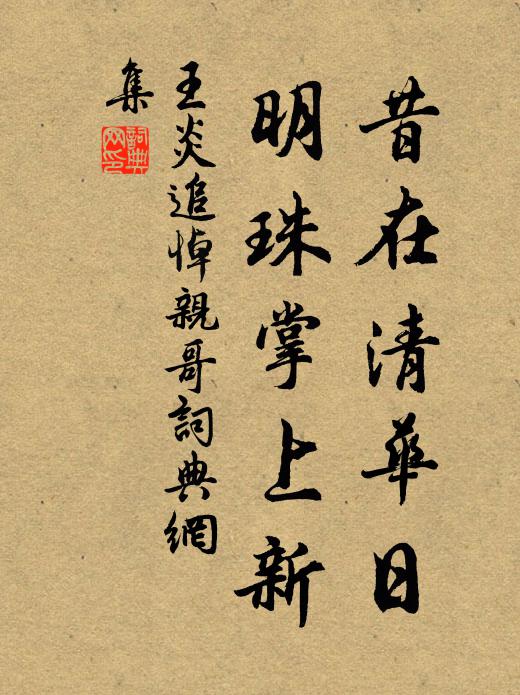 昔在清華日
明珠掌上新
王炎追悼親哥詞典網
集
詞典
网印